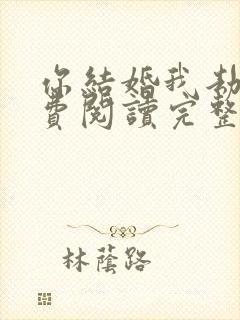 你結婚我劫
費閱讀完整
林蔭路